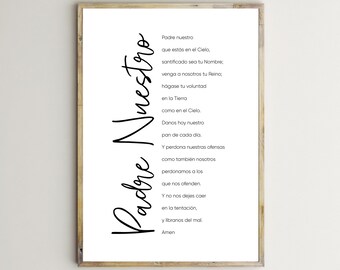 Padre Nuestro
Padre nuestro
que estás en el Cielo,
santificado sea tu Nombre;
venga a nosotros tu Reino;
hágase tu voluntad
en la Tierra
como en el Cielo.
Danos hoy nuestro
pan de cada día.
Y perdona nuestras ofensas
como también nosotros
perdonamos a los
que nos ofenden.
Y no nos dejes caer
en la tentación,
y líbranos del mal.
Amén